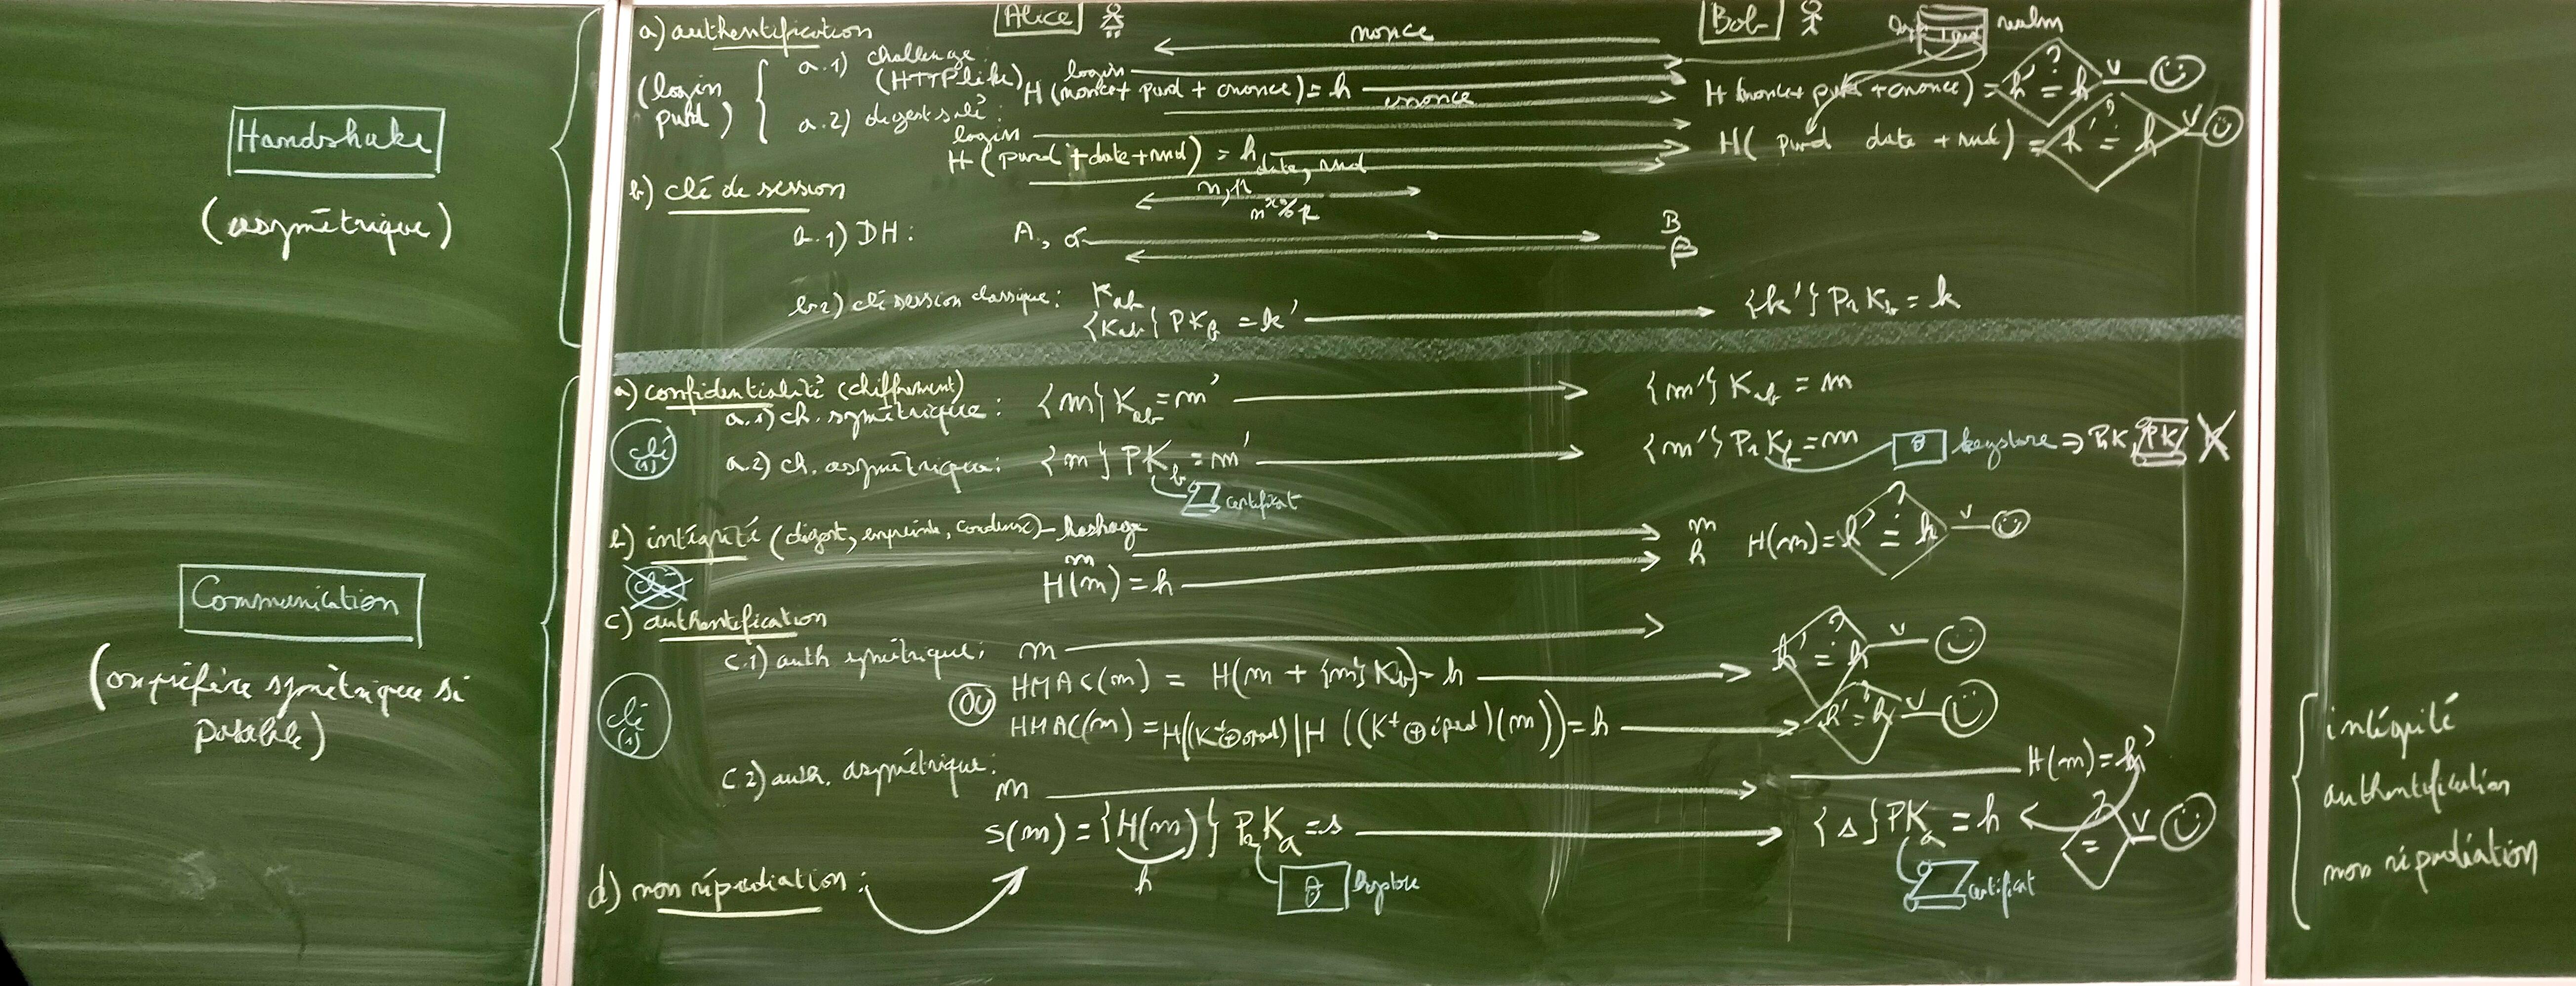 Handshake
(asymétrique)
Communication
(on préfère symétrique si
possible)
Alice
Bob
realm
a) authentification
(login
pwd)
a.1) challenge :
(HTTP like)
nonce
login
H(nonce + pwd + cnonce) = h
cnonce
H(nonce + pwd + cnonce) = h' =? h V
a.2) digest salé :
login
H(pwd + date + rnd) = h
date, rnd
H( pwd date + rnd) = h' =? h V
b) clé de session
n, p
n^x % p
a.1) DH : A, α
B
β
b.2) clé session classique : Kab
{Kab} PKb = k'
{k'} PrKb = k
a) confidentialité (chiffrement)
a.1) ch. symétrique : {m} Kab = m'
{m'} Kab = m
clé
(s)
a.2) ch. asymétrique : {m} PKb = m'
certificat
{m'} PrKb = m
keystore ⇒ PrK, PK
b) intégrité (digest, empreinte, condensé) - hashage
clé
m
H(m) = h
m
h
H(m) = h' =? h V
c) authentification
clé
(s)
c.1) auth symétrique : m
HMAC(m) = H(m + {m} Kb) = h
h' =? h V
OU
HMAC(m) = H((K+ ⊕ opad) | H ((K+ ⊕ ipad)(m))) = h
h' =? h V
c.2) auth. asymétrique :
m
H(m) = h'
S(m) = {H(m)} PrKa = s
h
keystore
{s} PKa = h
certificat
? = V
d) non répudiation :
intégrité
authentification
non répudiation